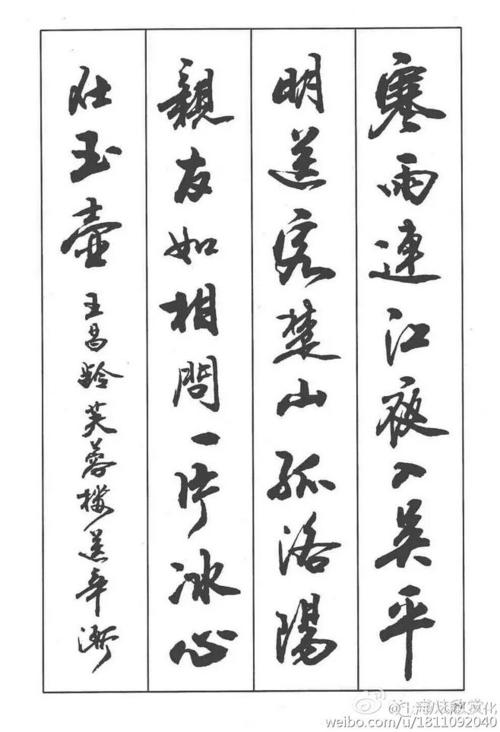 寒雨連江夜入吳平
明送客楚山孤洛陽
親友如相問一片冰心
在玉壺 王昌齡芙蓉樓送辛漸
weibo.com/u/1811092040